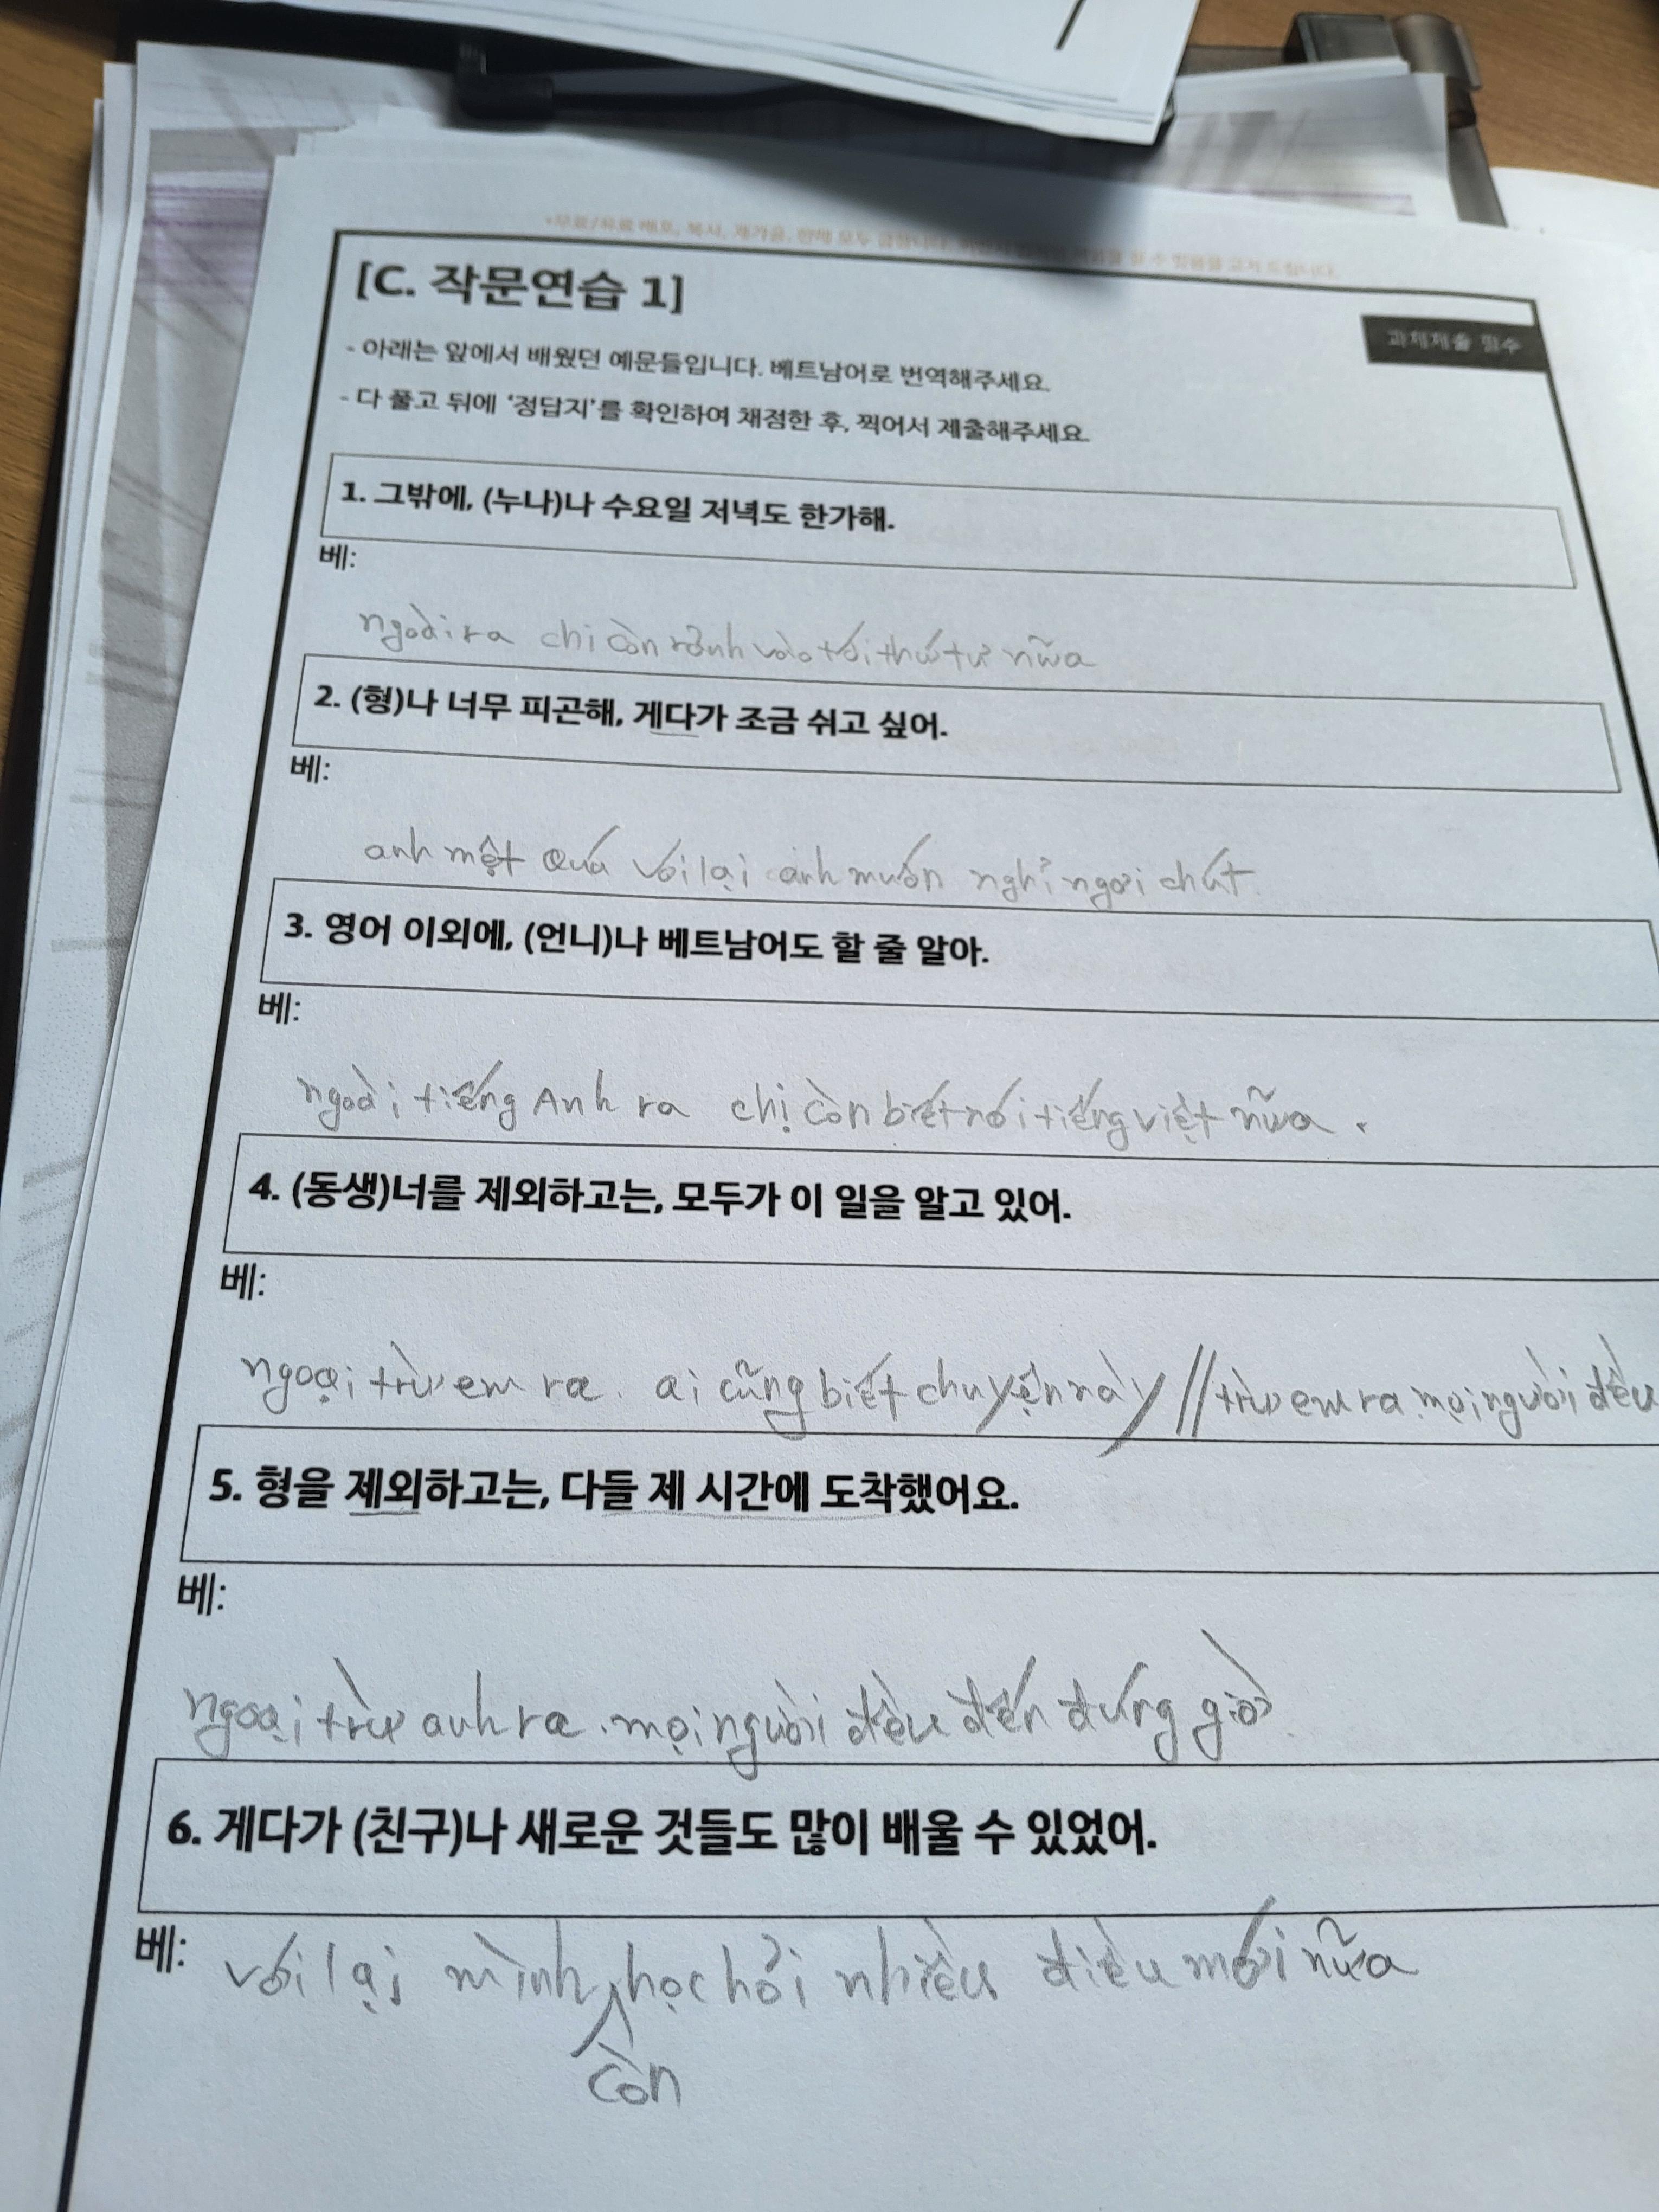 [C. 작문연습 1]
과제제출 필수
- 아래는 앞에서 배웠던 예문들입니다. 베트남어로 번역해주세요.
- 다 풀고 뒤에 ‘정답지’를 확인하여 채점한 후, 찍어서 제출해주세요.
1. 그밖에, (누나)나 수요일 저녁도 한가해.
베:
ngoài ra chi còn rảnh vào tối thứ tư nữa
2. (형)나 너무 피곤해, 게다가 조금 쉬고 싶어.
베:
anh mệt quá với lại anh muốn nghỉ ngơi chút.
3. 영어 이외에, (언니)나 베트남어도 할 줄 알아.
베:
ngoài tiếng Anh ra chị còn biết nói tiếng việt nữa.
4. (동생)너를 제외하고는, 모두가 이 일을 알고 있어.
베:
ngoại trừ em ra. ai cũng biết chuyện này // trừ em ra mọi người đều
5. 형을 제외하고는, 다들 제 시간에 도착했어요.
베:
ngoại trừ anh ra. mọi người đều đến đứng giờ.
6. 게다가 (친구)나 새로운 것들도 많이 배울 수 있었어.
베: với lại mình học hỏi nhiều điều mới nữa
còn